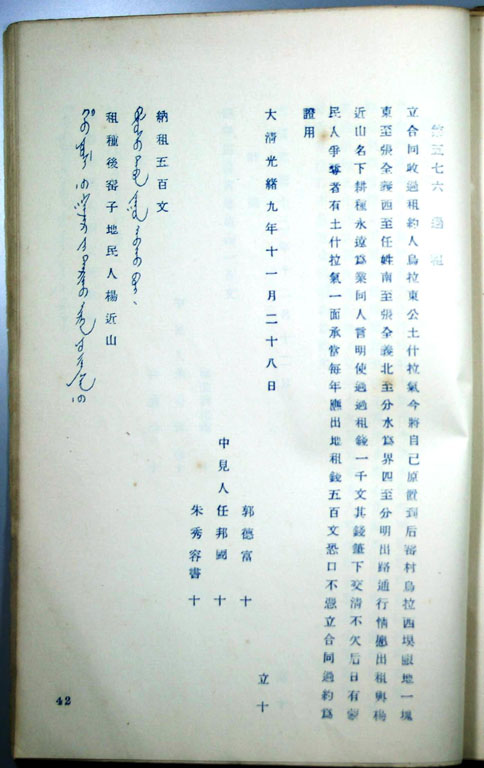 第三七六 過租
立合同收過租約人烏拉東公土什拉氣今將自己原置到后窰村烏拉西堁眼地一塊
東至張全義西至任姓南至張全義北至分水為界四至分明出路通行情愿出租與楊
近山名下耕種永遠為業同人言明使過過租錢一千文其錢筆下交清不欠后日有蒙
民人爭奪者有土什拉氣一面承當每年應出地租錢五百文恐口不憑立合同過約為
證用
大清光緒九年十一月二十八日 立十
中見人
郭德富 十
任邦國 十
朱秀容書 十
納租五百文
租種後窰子地民人楊近山
42